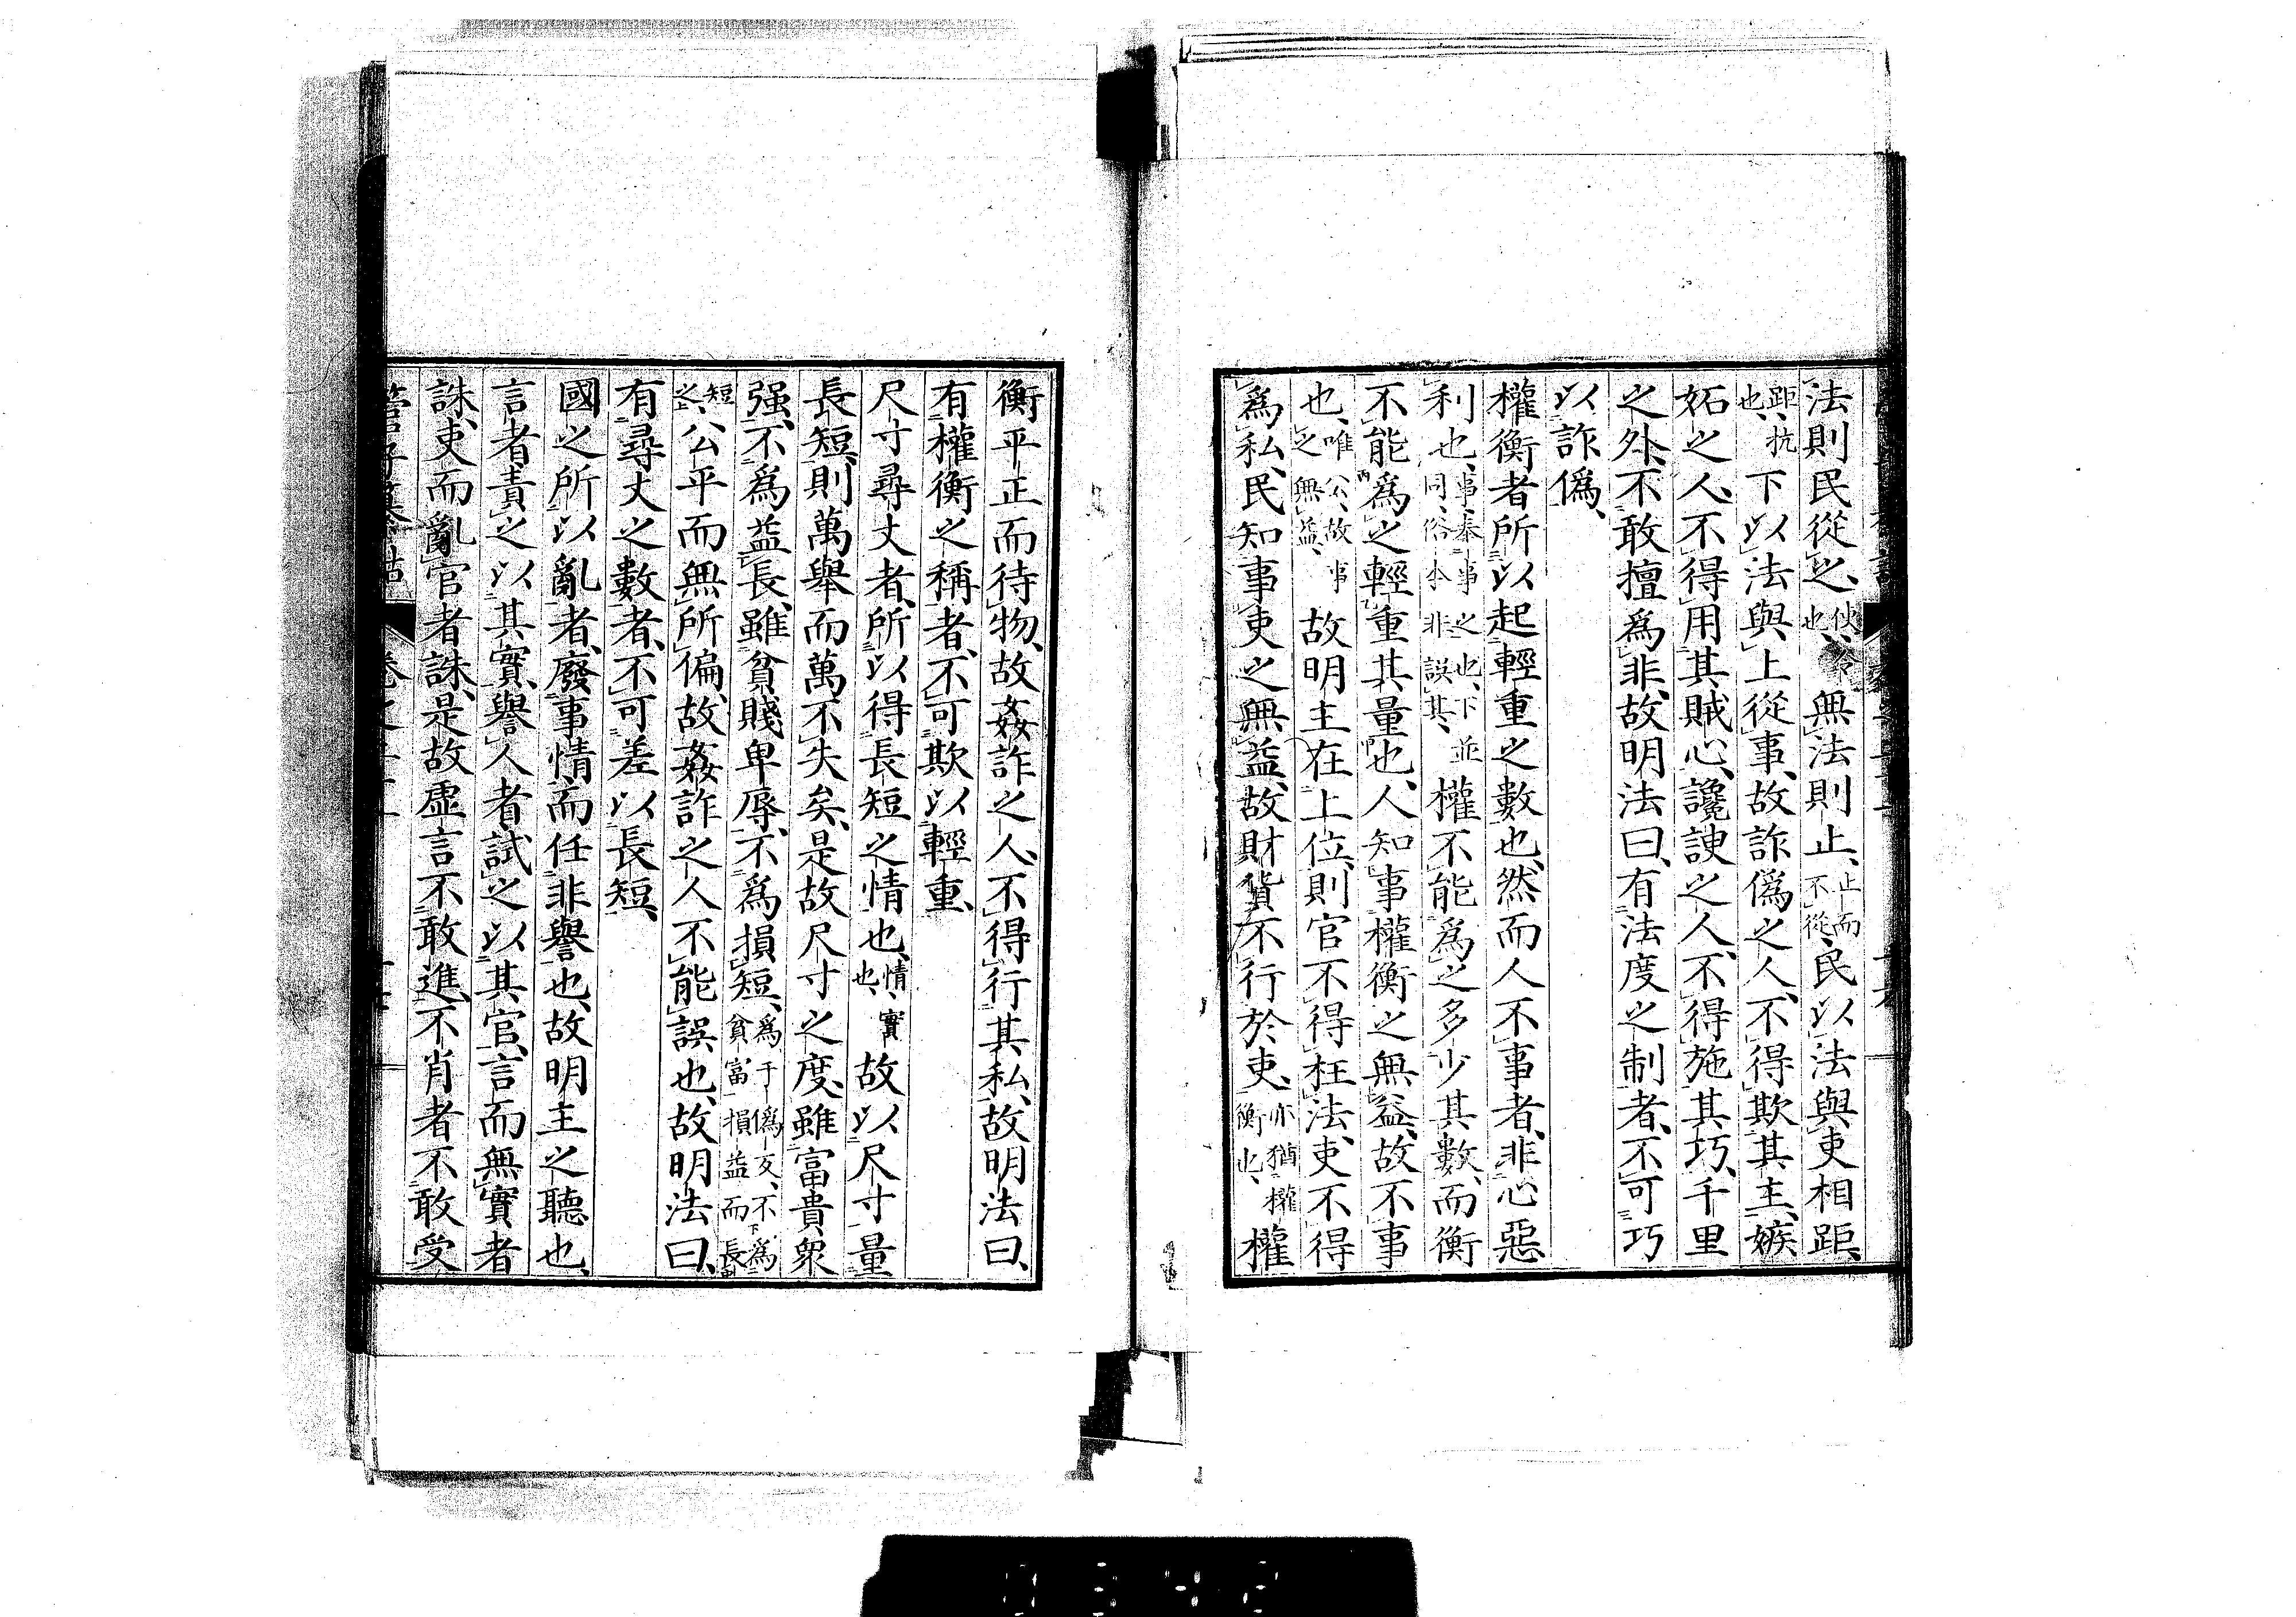 法則民從之、伏令也、無法則止、止而不從、民以法與吏相距、
距、抗也、下以法與上從事、故詐僞之人、不得欺其主、嫉
妬之人、不得用其賊心、讒諛之人、不得施其巧、千里
之外、不敢擅爲非、故明法曰、有法度之制者、不可巧
以詐僞、
權衡者所以起輕重之數也、然而人不事者、非心惡
利也、事、奉事之也、下並同、俗本非誤其、權不能爲之多少其數、而衡
不能爲之輕重其量也、人知事權衡之無益、故不事
也、唯公、故事之無益、故明主在上位、則官不得枉法、吏不得
爲私、民知事吏之無益、故財貨不行於吏、亦猶權衡也、權
衡平正而待物、故姦詐之人、不得行其私、故明法曰、
有權衡之稱者、不可欺以輕重、
尺寸尋丈者、所以得長短之情也、情、實也、故以尺寸量
長短、則萬舉而萬不失矣、是故尺寸之度、雖富貴衆
强、不爲益長、雖貧賤卑辱、不爲損短、爲于僞反、不下爲貧富損益而長
短之上、公平而無所偏、故姦詐之人不能誤也、故明法曰、
有尋丈之數者、不可差以長短、
國之所以亂者、廢事情而任非譽也、故明主之聽也、
言者責之以其實、譽人者試之以其官、言而無實者
誅、吏而亂官者誅、是故虛言不敢進、不肖者不敢受